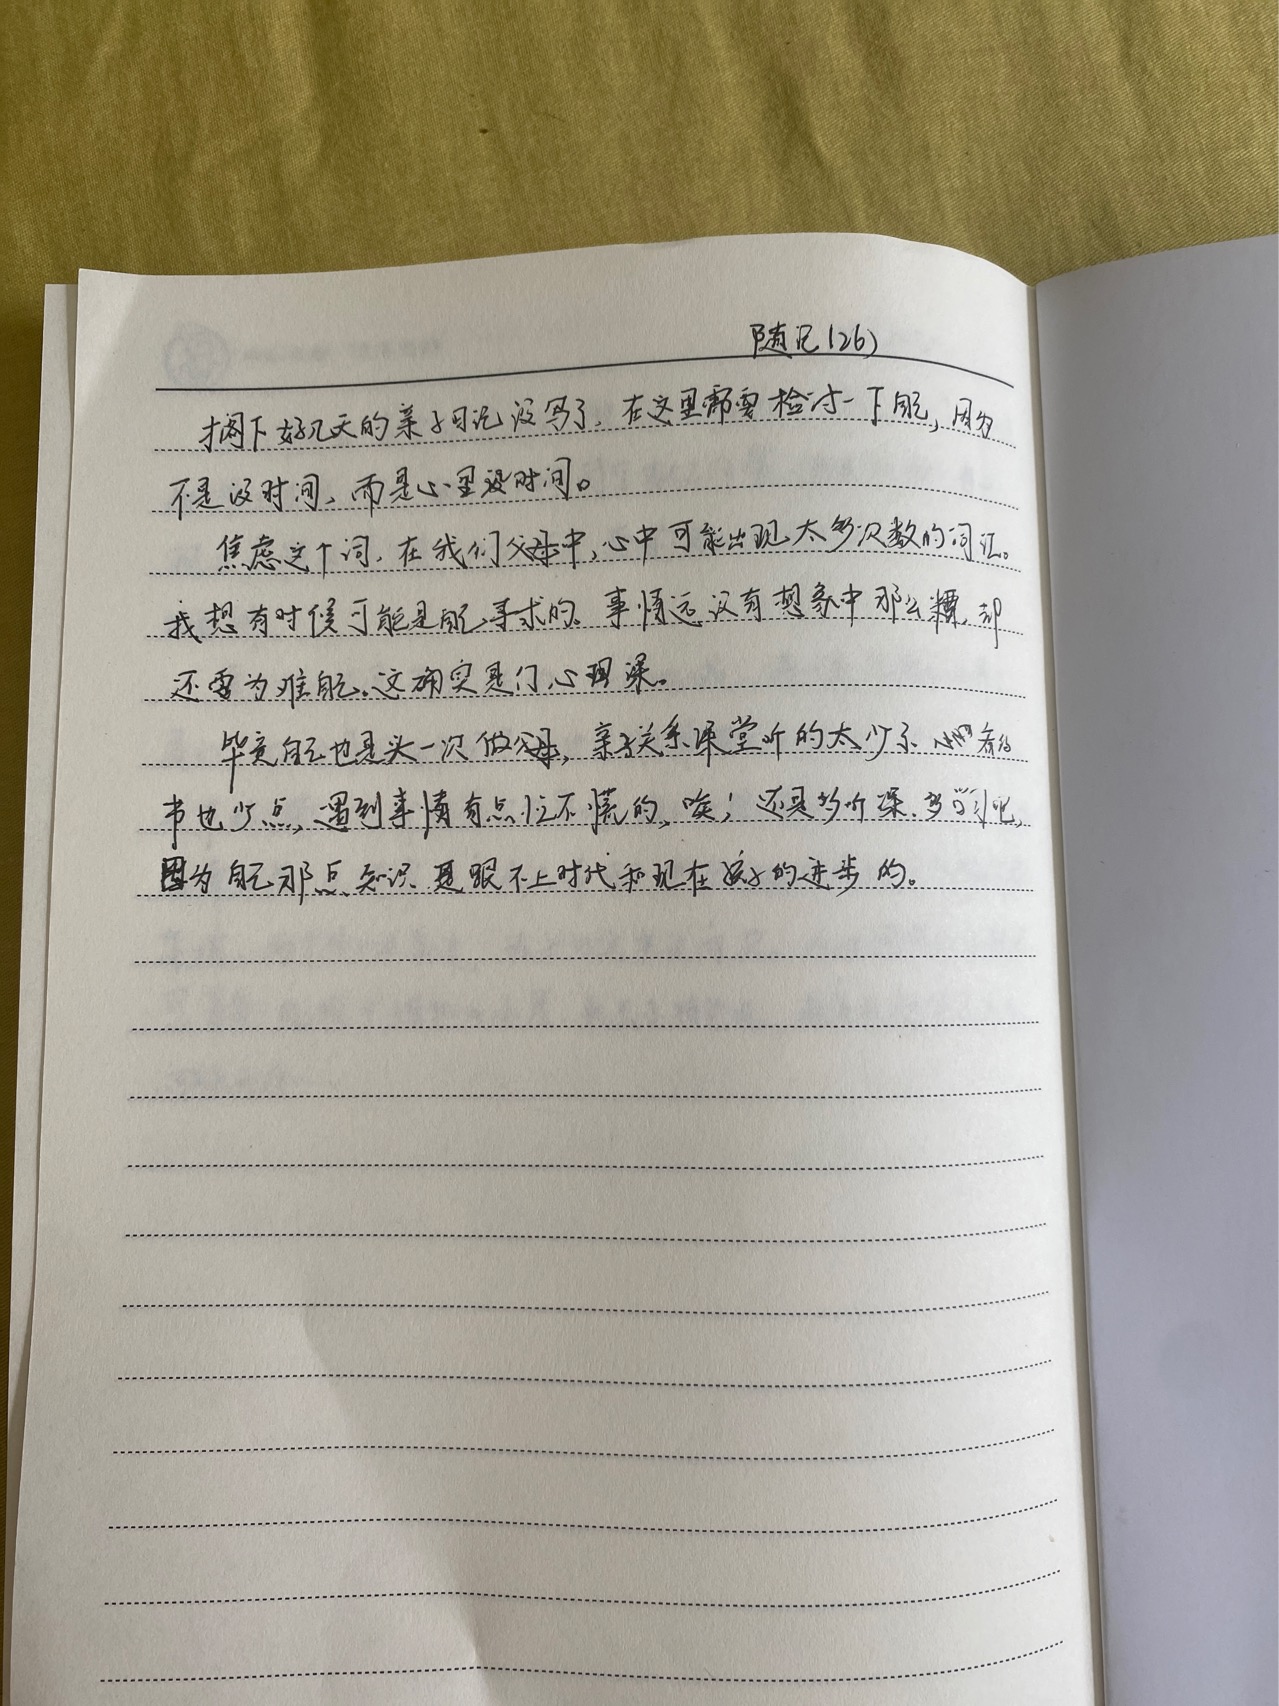 随记(26)
搁下好几天的亲子日记没写了、在这里需要检讨一下自己，因为
不是没时间、而是心里没时间。
焦虑这个词、在我们父母中,心中可能出现太多次数的词汇。
我想有时候可能是自己寻求的、事情远没有想象中那么糟、却
还要为难自己、这确实是门心理课。
毕竟自己也是头一次做父母，亲子关系课堂听的太少了、看的
书也少点，遇到事情有点忙不慌的，唉！还是多听课、多学习吧，
因为自己那点知识是跟不上时代和现在孩子的进步的。